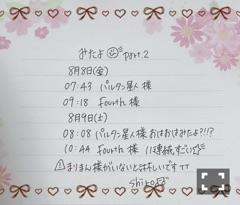 みたよ part.2
8月8日(金)
07:43 バルタン星人 様
09:18 Fourth 様
8月9日(土)
08:08 バルタン星人 様 おはおはみたよ?!!?
10:44 Fourth 様 11連続すごい
⚠まりまん様がいないと寂しいです TT
shiro